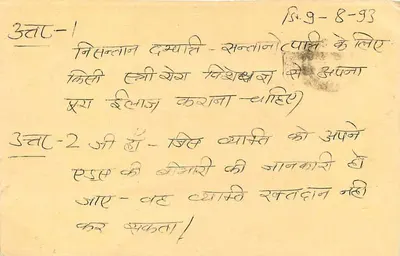 दि. 9-8-93
उत्तर-1
निसन्तान दम्पति - सन्तानोत्पति के लिए
किसी स्त्री रोग विशेषज्ञ से अपना
पूरा ईलाज कराना चाहिए।
उत्तर-2 जी हाँ - जिस व्यक्ति को अपने
एडस की बीमारी की जानकारी हो
जाए - वह व्यक्ति रक्तदान नही
कर सकता।